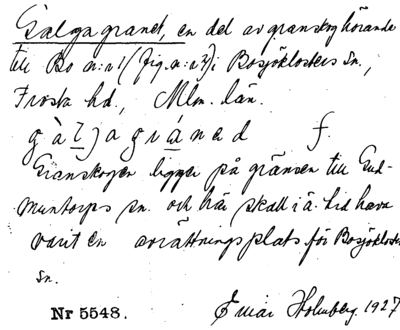 Galgagranet, en del av granskog hörande
till Bo n:r 1 (fig. n:r 3) i Bosjöklosters sn.,
Frosta hd., Mlm. län.
gàl̲jagra̲ned f.
Granskogen ligger på gränsen till Gud-
muntorps sn. och här skall i ä. tid hava
varit en avrättningsplats för Bosjökloster
sn.
Nr 5548. Einar Holmberg. 1927